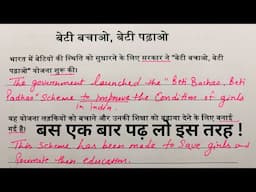 बेटी बचाओ, बेटी पढ़ाओ
भारत में बेटियों की स्थिति को सुधारने के लिए सरकार ने "बेटी बचाओ, बेटी
पढ़ाओ" योजना शुरू की।
"The government launched the "Beti Bachao, Beti
Padhao" Scheme to improve the Condition of girls
in India.
यह योजना लड़कियों को बचाने और उनकी शिक्षा को बढ़ावा देने के लिए बनाई
गई है।
बस एक बार पढ़ लो इस तरह !
This Scheme has been made to Save girls and
Promote their education.